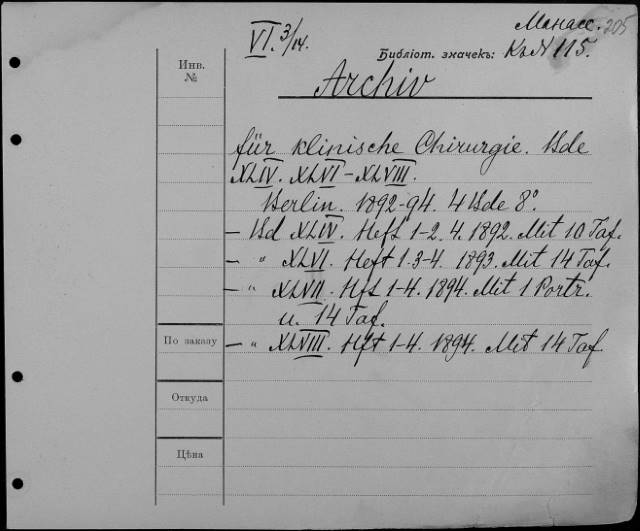 Манасс. 205
VI. 3/14.
Библіот. значекъ: К. № 115.
Инв.
№
Archiv
für klinische Chirurgie. Bde
XLIV. XLVI–XLVIII.
Berlin. 1892-94. 4 Bde 8°.
— Bd XLIV. Heft 1-2. 4. 1892. Mit 10 Taf.
— " XLVI. Heft 1. 3-4. 1893. Mit 14 Taf.
— " XLVII. Hft 1-4. 1894. Mit 1 Portr.
u. 14 Taf.
По заказу
— " XLVIII. Hft 1-4. 1894. Mit 14 Taf.
Откуда
Цѣна